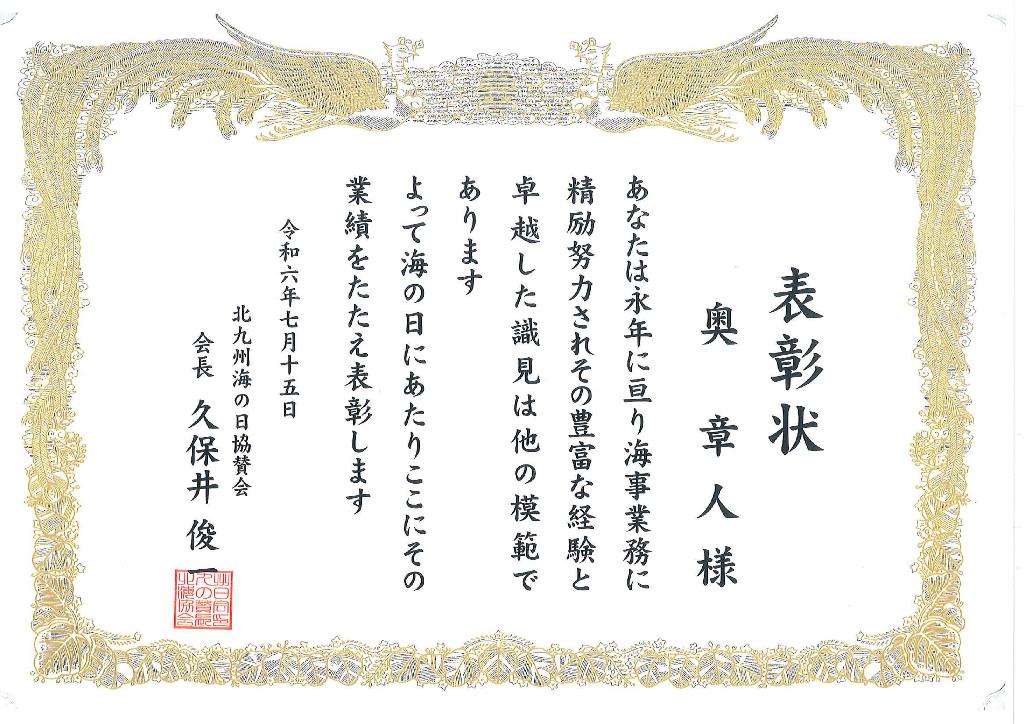 表彰状
奥章人様
あなたは永年に亘り海事業務に
精励努力されその豊富な経験と
卓越した識見は他の模範で
あります
よって海の日にあたりここにその
業績をたたえ表彰します
令和六年七月十五日
北九州海の日協賛会
会長 久保井俊一